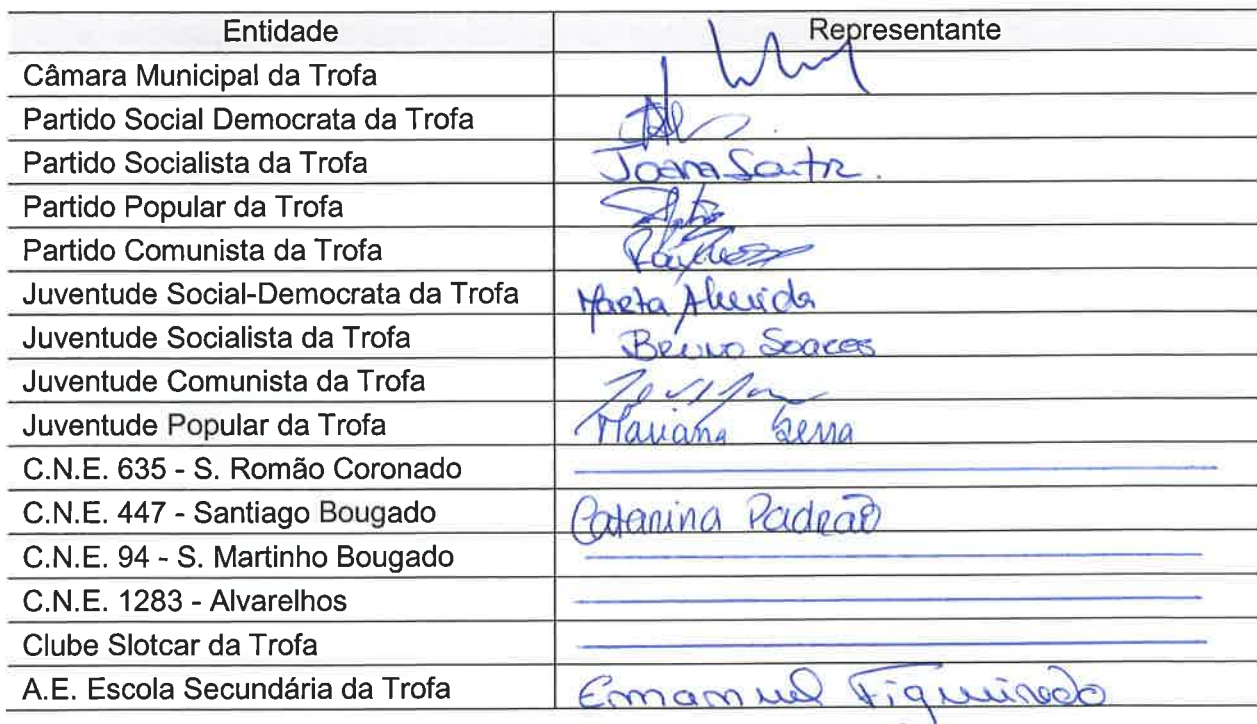 Entidade Representante
Câmara Municipal da Trofa
Partido Social Democrata da Trofa
Partido Socialista da Trofa Joana
Partido Popular da Trofa
Partido Comunista da Trofa
Juventude Social-Democrata da Trofa Marta Almeida
Juventude Socialista da Trofa Bruno Soares
Juventude Comunista da Trofa
Juventude Popular da Trofa Mariana Serra
C.N.E. 635 - S. Romão Coronado
C.N.E. 447 - Santiago Bougado Catarina Padrão
C.N.E. 94 - S. Martinho Bougado
C.N.E. 1283 - Alvarelhos
Clube Slotcar da Trofa
A.E. Escola Secundária da Trofa Emanuel Figueiredo